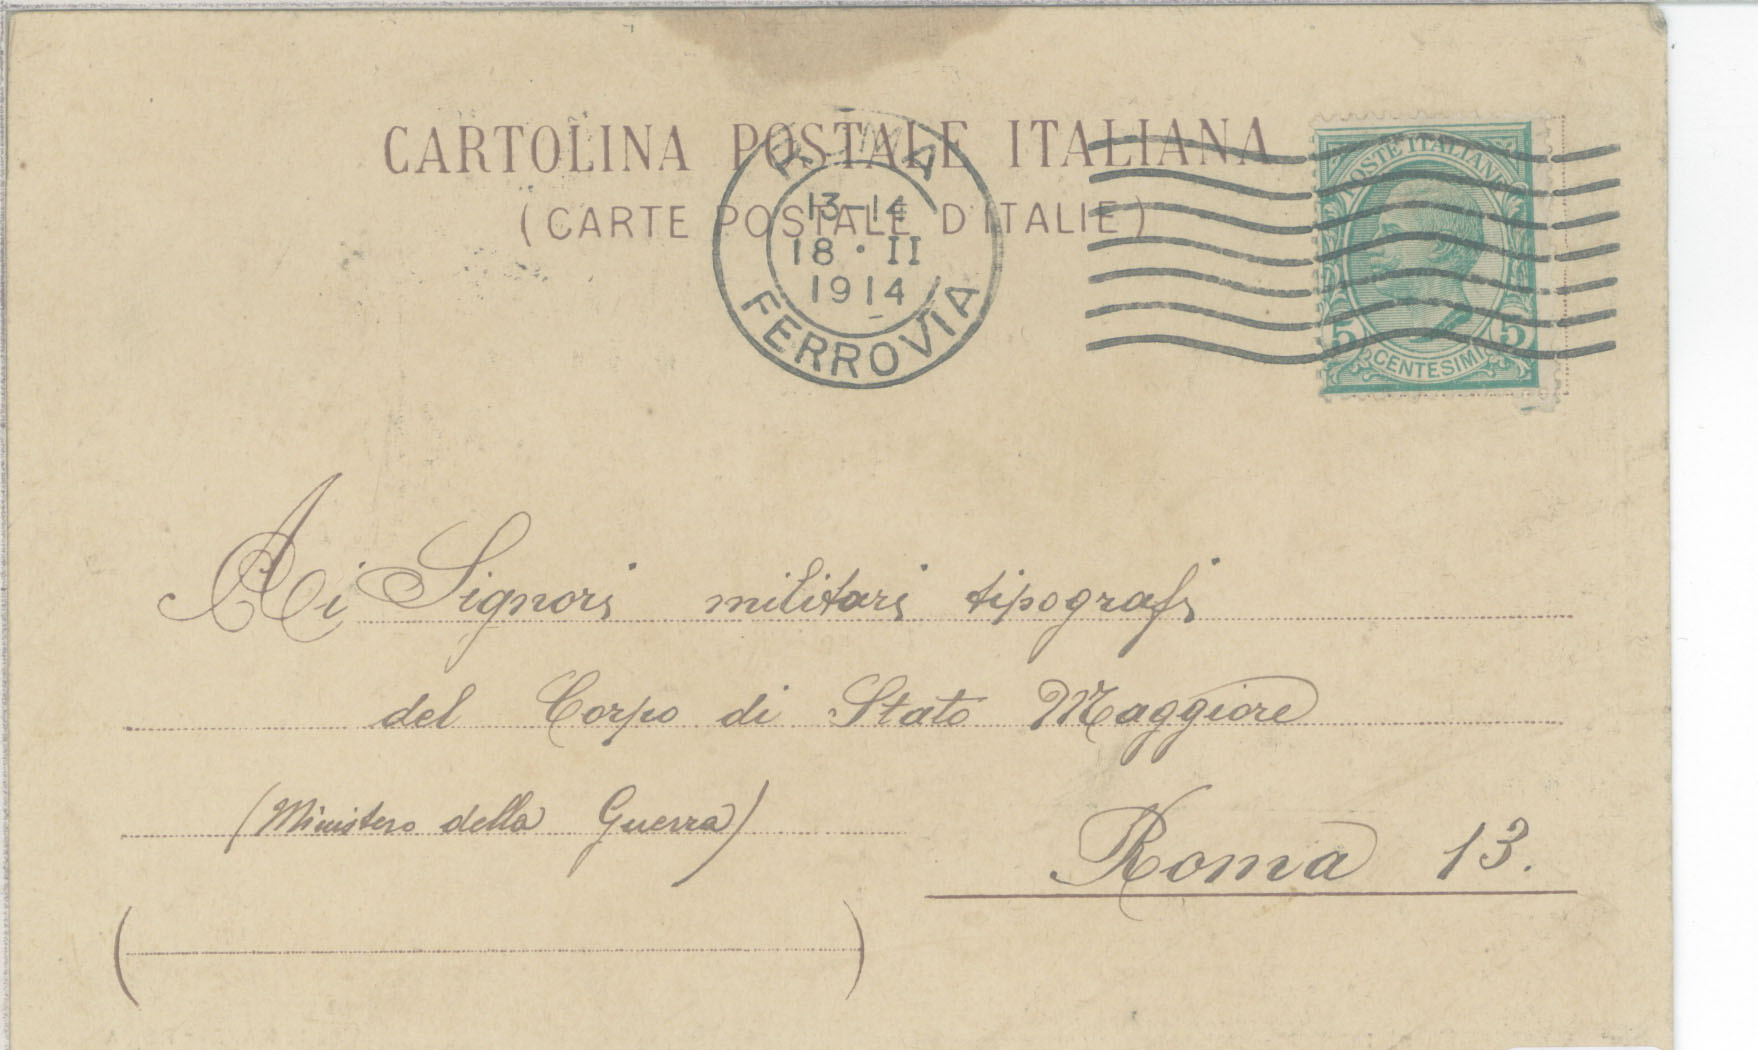 CARTOLINA POSTALE ITALIANA
(CARTE POSTALE D'ITALIE)
ROMA
13-14
18 · II
1914
FERROVIA
POSTE ITALIANE
5 5
CENTESIMI
Ai Signori militari tipografi
del Corpo di Stato Maggiore
(Ministero della Guerra)
Roma 13.